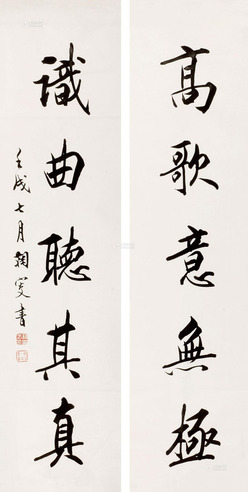 高歌意無極
識曲聽其真
壬戌七月鞠叟書